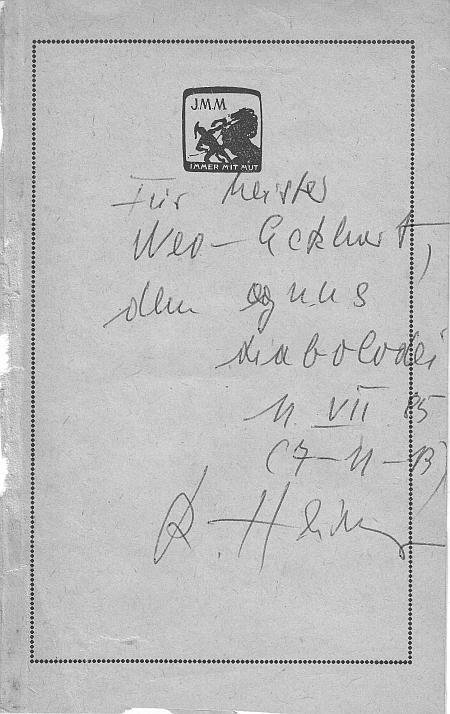 J.M.M
IMMER MIT MUT
Für Meister
Neo-Eckhart,
dem agnus
diabolodei
11 VII 85
(7-11-13)